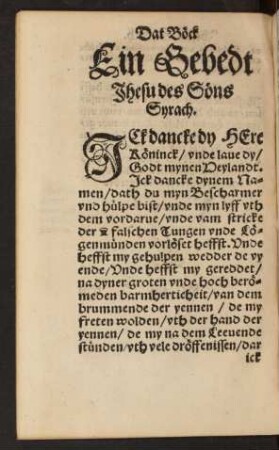 Dat Böck
Ein Gebedt
Jhesu des Söns
Syrach.
JCk dancke dy HEre
Köninck/ vnde laue dy/
Godt mynen Heylandt.
Jck dancke dynem Na-
men/ dath du myn Beschärmer
vnd hülpe bist/ vnde myn lyff vth
dem vordarue/ vnde vam stricke
der falschen Tungen vnde Lö-
genmünden vorlöset heffst. Vnde
heffst my gehulpen wedder de vy
ende/ Vnde heffst my gereddet/
na dyner groten vnde hoch berö-
meden barmherticheit/ van dem
brummende der yennen / de my
freten wolden/ vth der hand der
yennen/ de my na dem Leeuende
stünden/ vth vele dröffenissen/ dar
ick